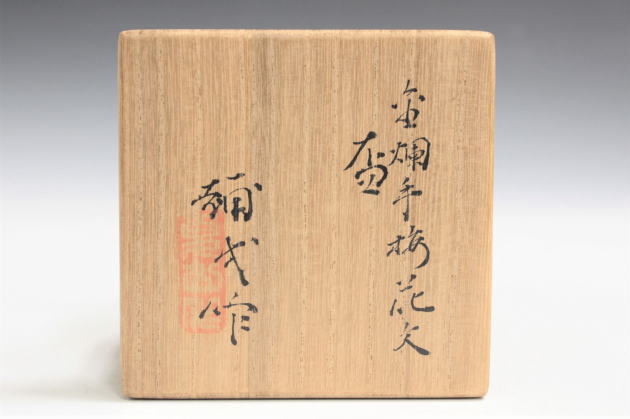 金襴手梅花文
盃
輔弌作